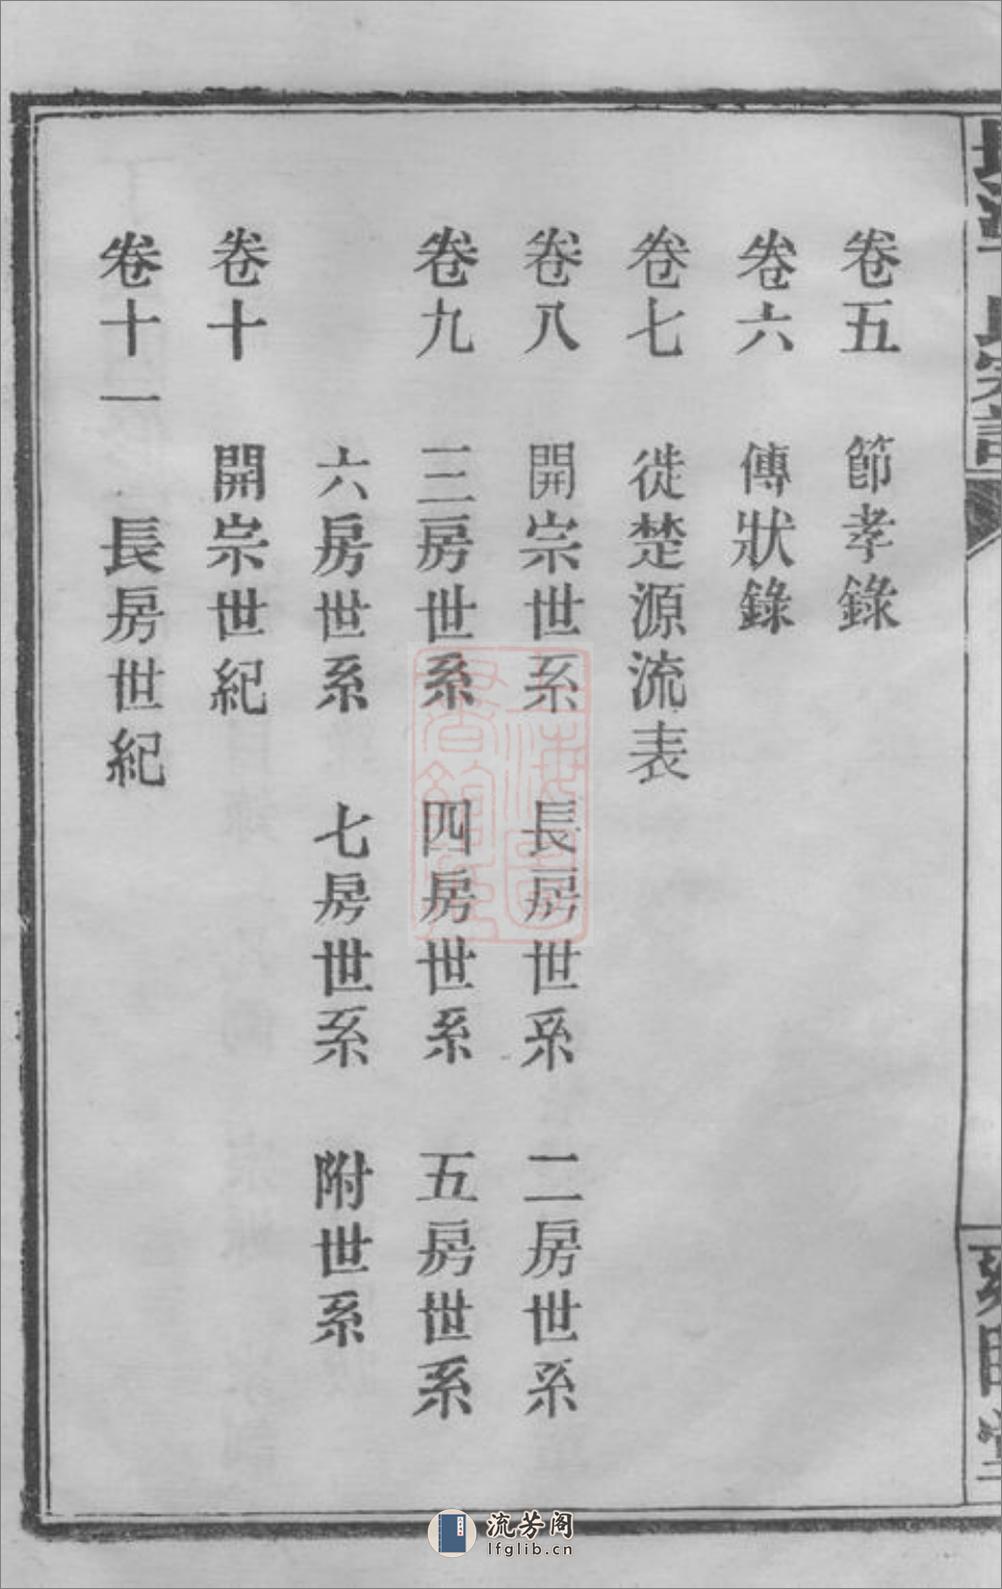 卷五　節孝錄
卷六　傳狀錄
卷七　徙楚源流表
卷八　開宗世系　長房世系　二房世系
卷九　三房世系　四房世系　五房世系
六房世系　七房世系　附世系
卷十　開宗世紀
卷十一　長房世紀
上海圖書館藏
流芳阁
lfglib.cn